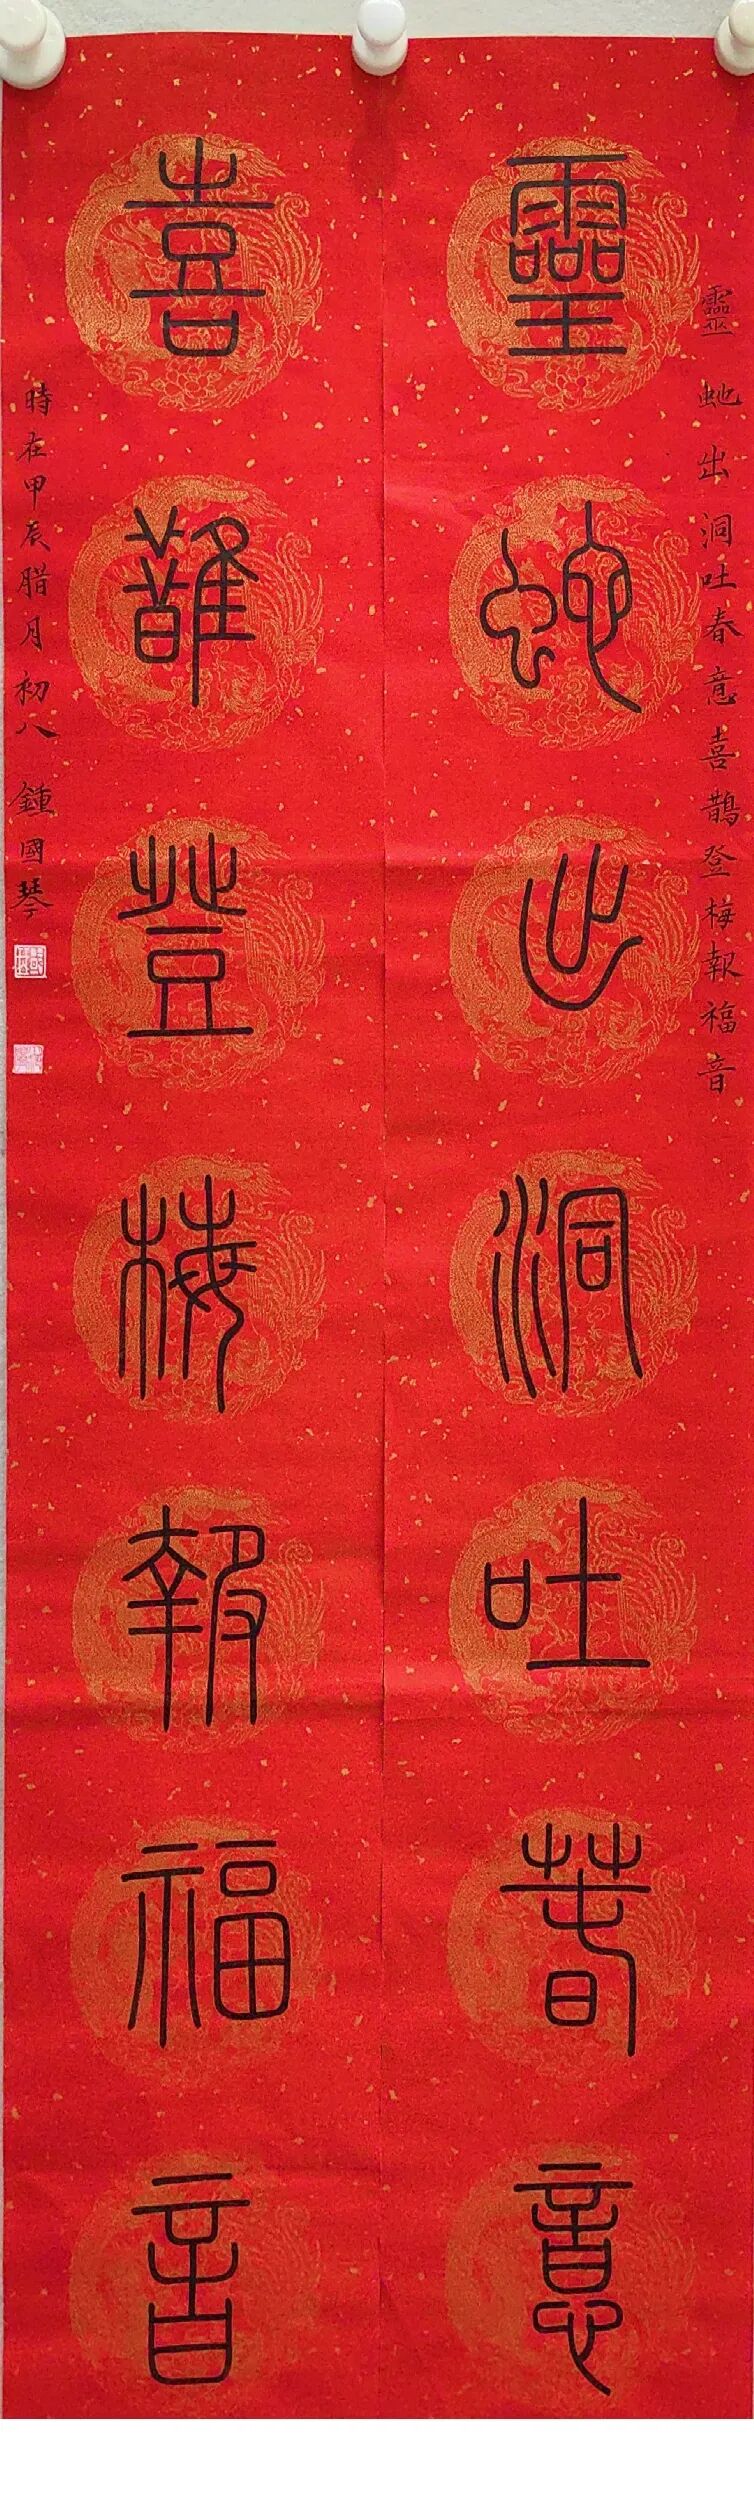 靈蛇出洞吐春意喜鵲登梅報福音
靈蛇出洞吐春意
喜鵲登梅報福音
時在甲辰腊月初八鍾國琴